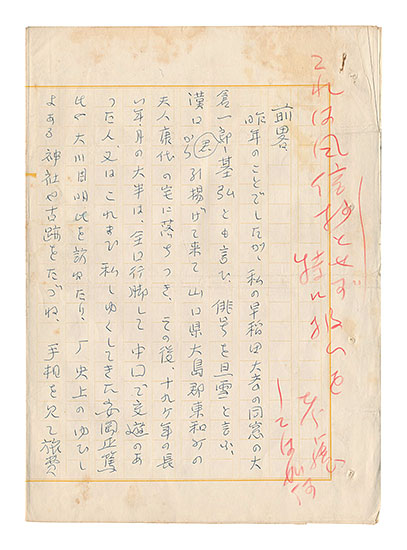 これは風信抄とせず
特に扱いを
しては如何
前畧、
昨年のことでしたが、私の早稲田大学の同窓の大
倉一郎―基弘とも言ひ、俳号を旦雪と言ふ、
漢口から引揚げて来て山口県大島郡東和町の
夫人康代の宅に落ちつき、その後、十九ヶ年の長
い年月の大半は、全国行脚して中国で交遊のあ
つた人、又はこれまで私しゆくしてきた安岡正篤
氏や大川周明氏を訪ねたり、歴史上のゆひし
よある神社や古跡をたづね、手相を見て旅費